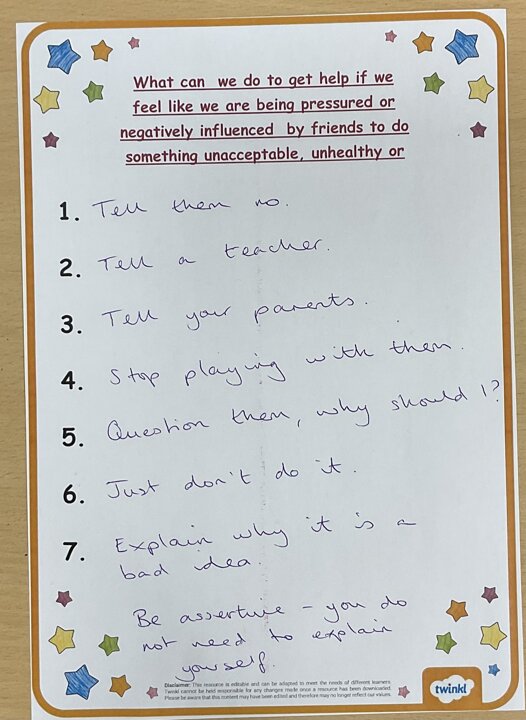 What can we do to get help if we
feel like we are being pressured or
negatively influenced by friends to do
something unacceptable, unhealthy or
1. Tell them no.
2. Tell a teacher.
3. Tell your parents.
4. Stop playing with them.
5. Question them, why should I?
6. Just don't do it.
7. Explain why it is a
bad idea.
Be assertive - you do
not need to explain
yourself.
Disclaimer: This resource is editable and can be adapted to meet the needs of different learners.
Twinkl cannot be held responsible for any changes made once a resource has been downloaded.
Please be aware that this content may have been edited and therefore may no longer reflect our values.
twinkl